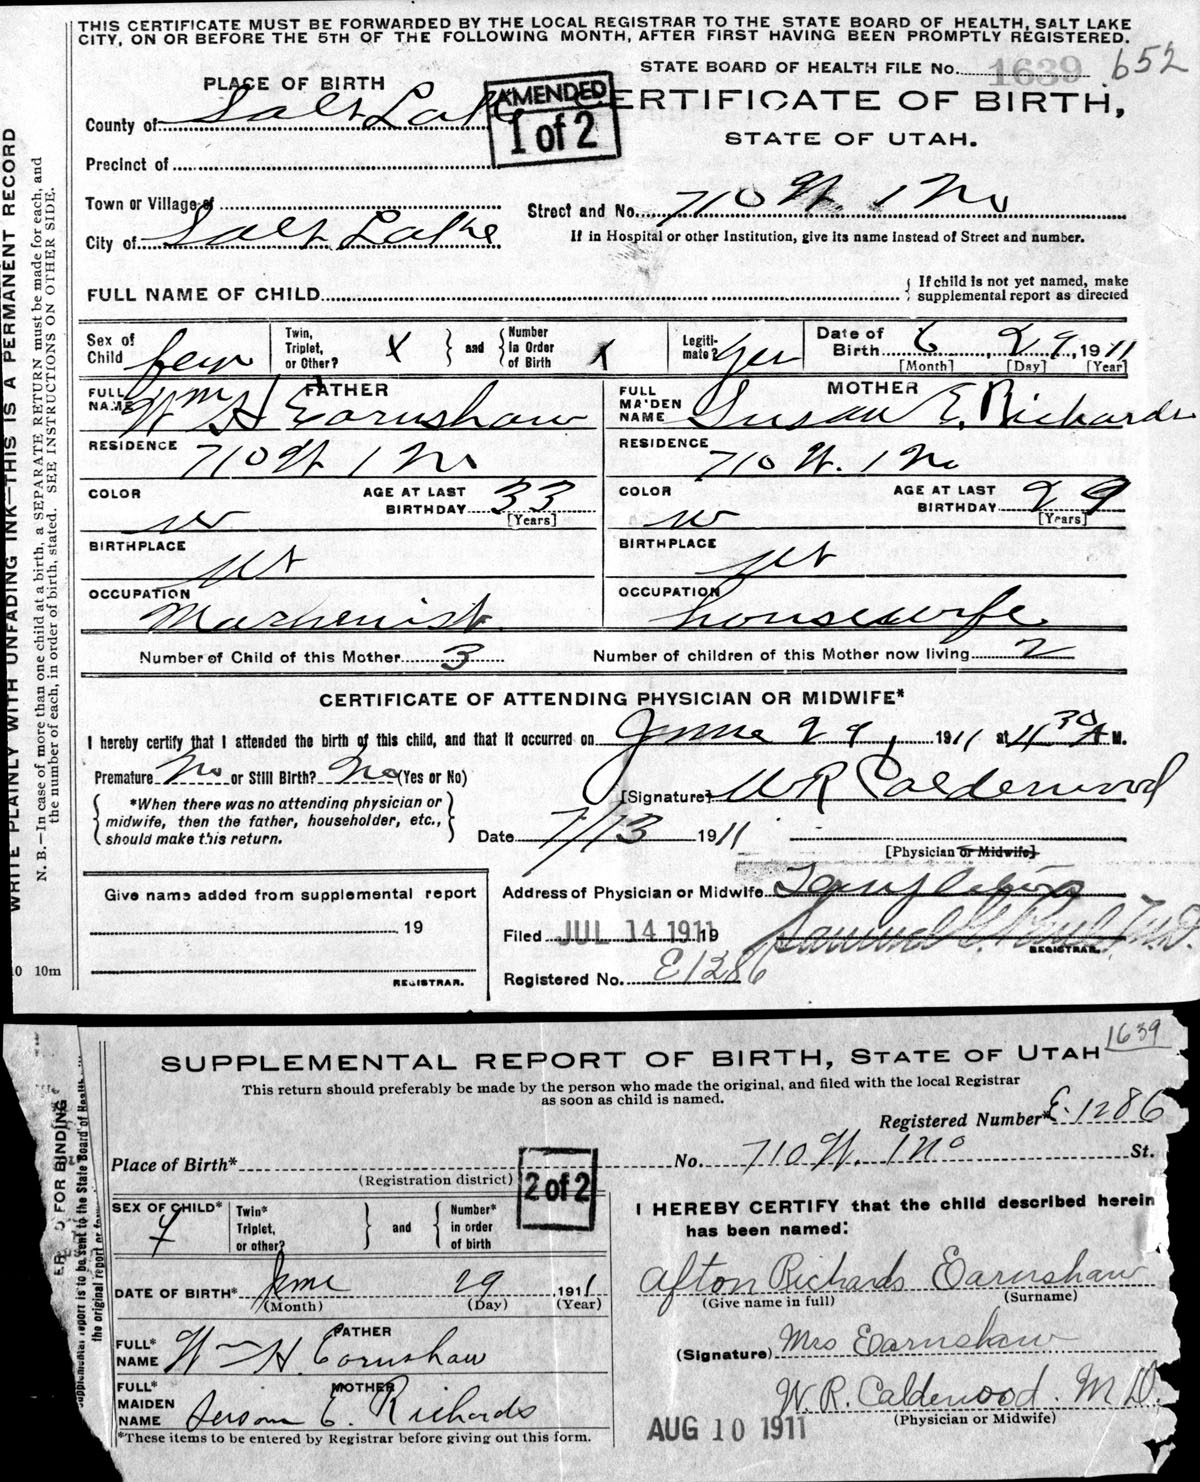 THIS CERTIFICATE MUST BE FORWARDED BY THE LOCAL REGISTRAR TO THE STATE BOARD OF HEALTH, SALT LAKE
CITY, ON OR BEFORE THE 5TH OF THE FOLLOWING MONTH, AFTER FIRST HAVING BEEN PROMPTLY REGISTERED.
STATE BOARD OF HEALTH FILE No. 1639 652
PLACE OF BIRTH
AMENDED
1 of 2
CERTIFICATE OF BIRTH,
STATE OF UTAH.
County of Salt Lake
Precinct of
Town or Village of
Street and No. 710 W. 1 No
City of Salt Lake
If in Hospital or other Institution, give its name instead of Street and number.
FULL NAME OF CHILD
{ If child is not yet named, make
supplemental report as directed
Sex of Child fem
Twin, Triplet, or Other? X } and { Number In Order of Birth X
Legitimate? yes
Date of Birth 6, 29, 1911
[Month] [Day] [Year]
FATHER
FULL NAME Wm H Earnshaw
MOTHER
FULL MAIDEN NAME Susan E. Richards
RESIDENCE 710 W 1 No
RESIDENCE 710 W. 1 No
COLOR w AGE AT LAST BIRTHDAY 33 [Years]
COLOR w AGE AT LAST BIRTHDAY 29 [Years]
BIRTHPLACE Ut
BIRTHPLACE Ut
OCCUPATION Machenist
OCCUPATION housewife
Number of Child of this Mother 3 Number of children of this Mother now living 2
CERTIFICATE OF ATTENDING PHYSICIAN OR MIDWIFE*
I hereby certify that I attended the birth of this child, and that it occurred on June 29, 1911 at 11 30 A M.
Premature No or Still Birth? No (Yes or No)
{ *When there was no attending physician or
midwife, then the father, householder, etc.,
should make this return. }
[Signature] W R Calderwood
Date 7/13 1911
[Physician or Midwife]
Give name added from supplemental report
19
REGISTRAR.
Address of Physician or Midwife
Filed JUL 14 1911 19 Samuel G. Paul M.D.
REGISTRAR.
Registered No. E1286
WRITE PLAINLY WITH UNFADING INK—THIS IS A PERMANENT RECORD
N. B.—In case of more than one child at a birth, a SEPARATE RETURN must be made for each, and
the number of each, in order of birth, stated. SEE INSTRUCTIONS ON OTHER SIDE.
10m
1639
SUPPLEMENTAL REPORT OF BIRTH, STATE OF UTAH
This return should preferably be made by the person who made the original, and filed with the local Registrar
as soon as child is named.
Registered Number* E-1286
Place of Birth* No. 710 W. 1 No St.
(Registration district)
2 of 2
SEX OF CHILD* f
Twin* Triplet, or other? } and { Number* in order of birth
I HEREBY CERTIFY that the child described herein
has been named:
DATE OF BIRTH* June 29 1911
(Month) (Day) (Year)
Afton Richards Earnshaw
(Give name in full) (Surname)
FATHER
FULL* NAME Wm H Earnshaw
(Signature) Mrs Earnshaw
MOTHER
FULL* MAIDEN NAME E. Richards
W. R. Calderwood. M D.
(Physician or Midwife)
AUG 10 1911
*These items to be entered by Registrar before giving out this form.
FOR BINDING
report is to be sent to the State Board of Health
the original report or